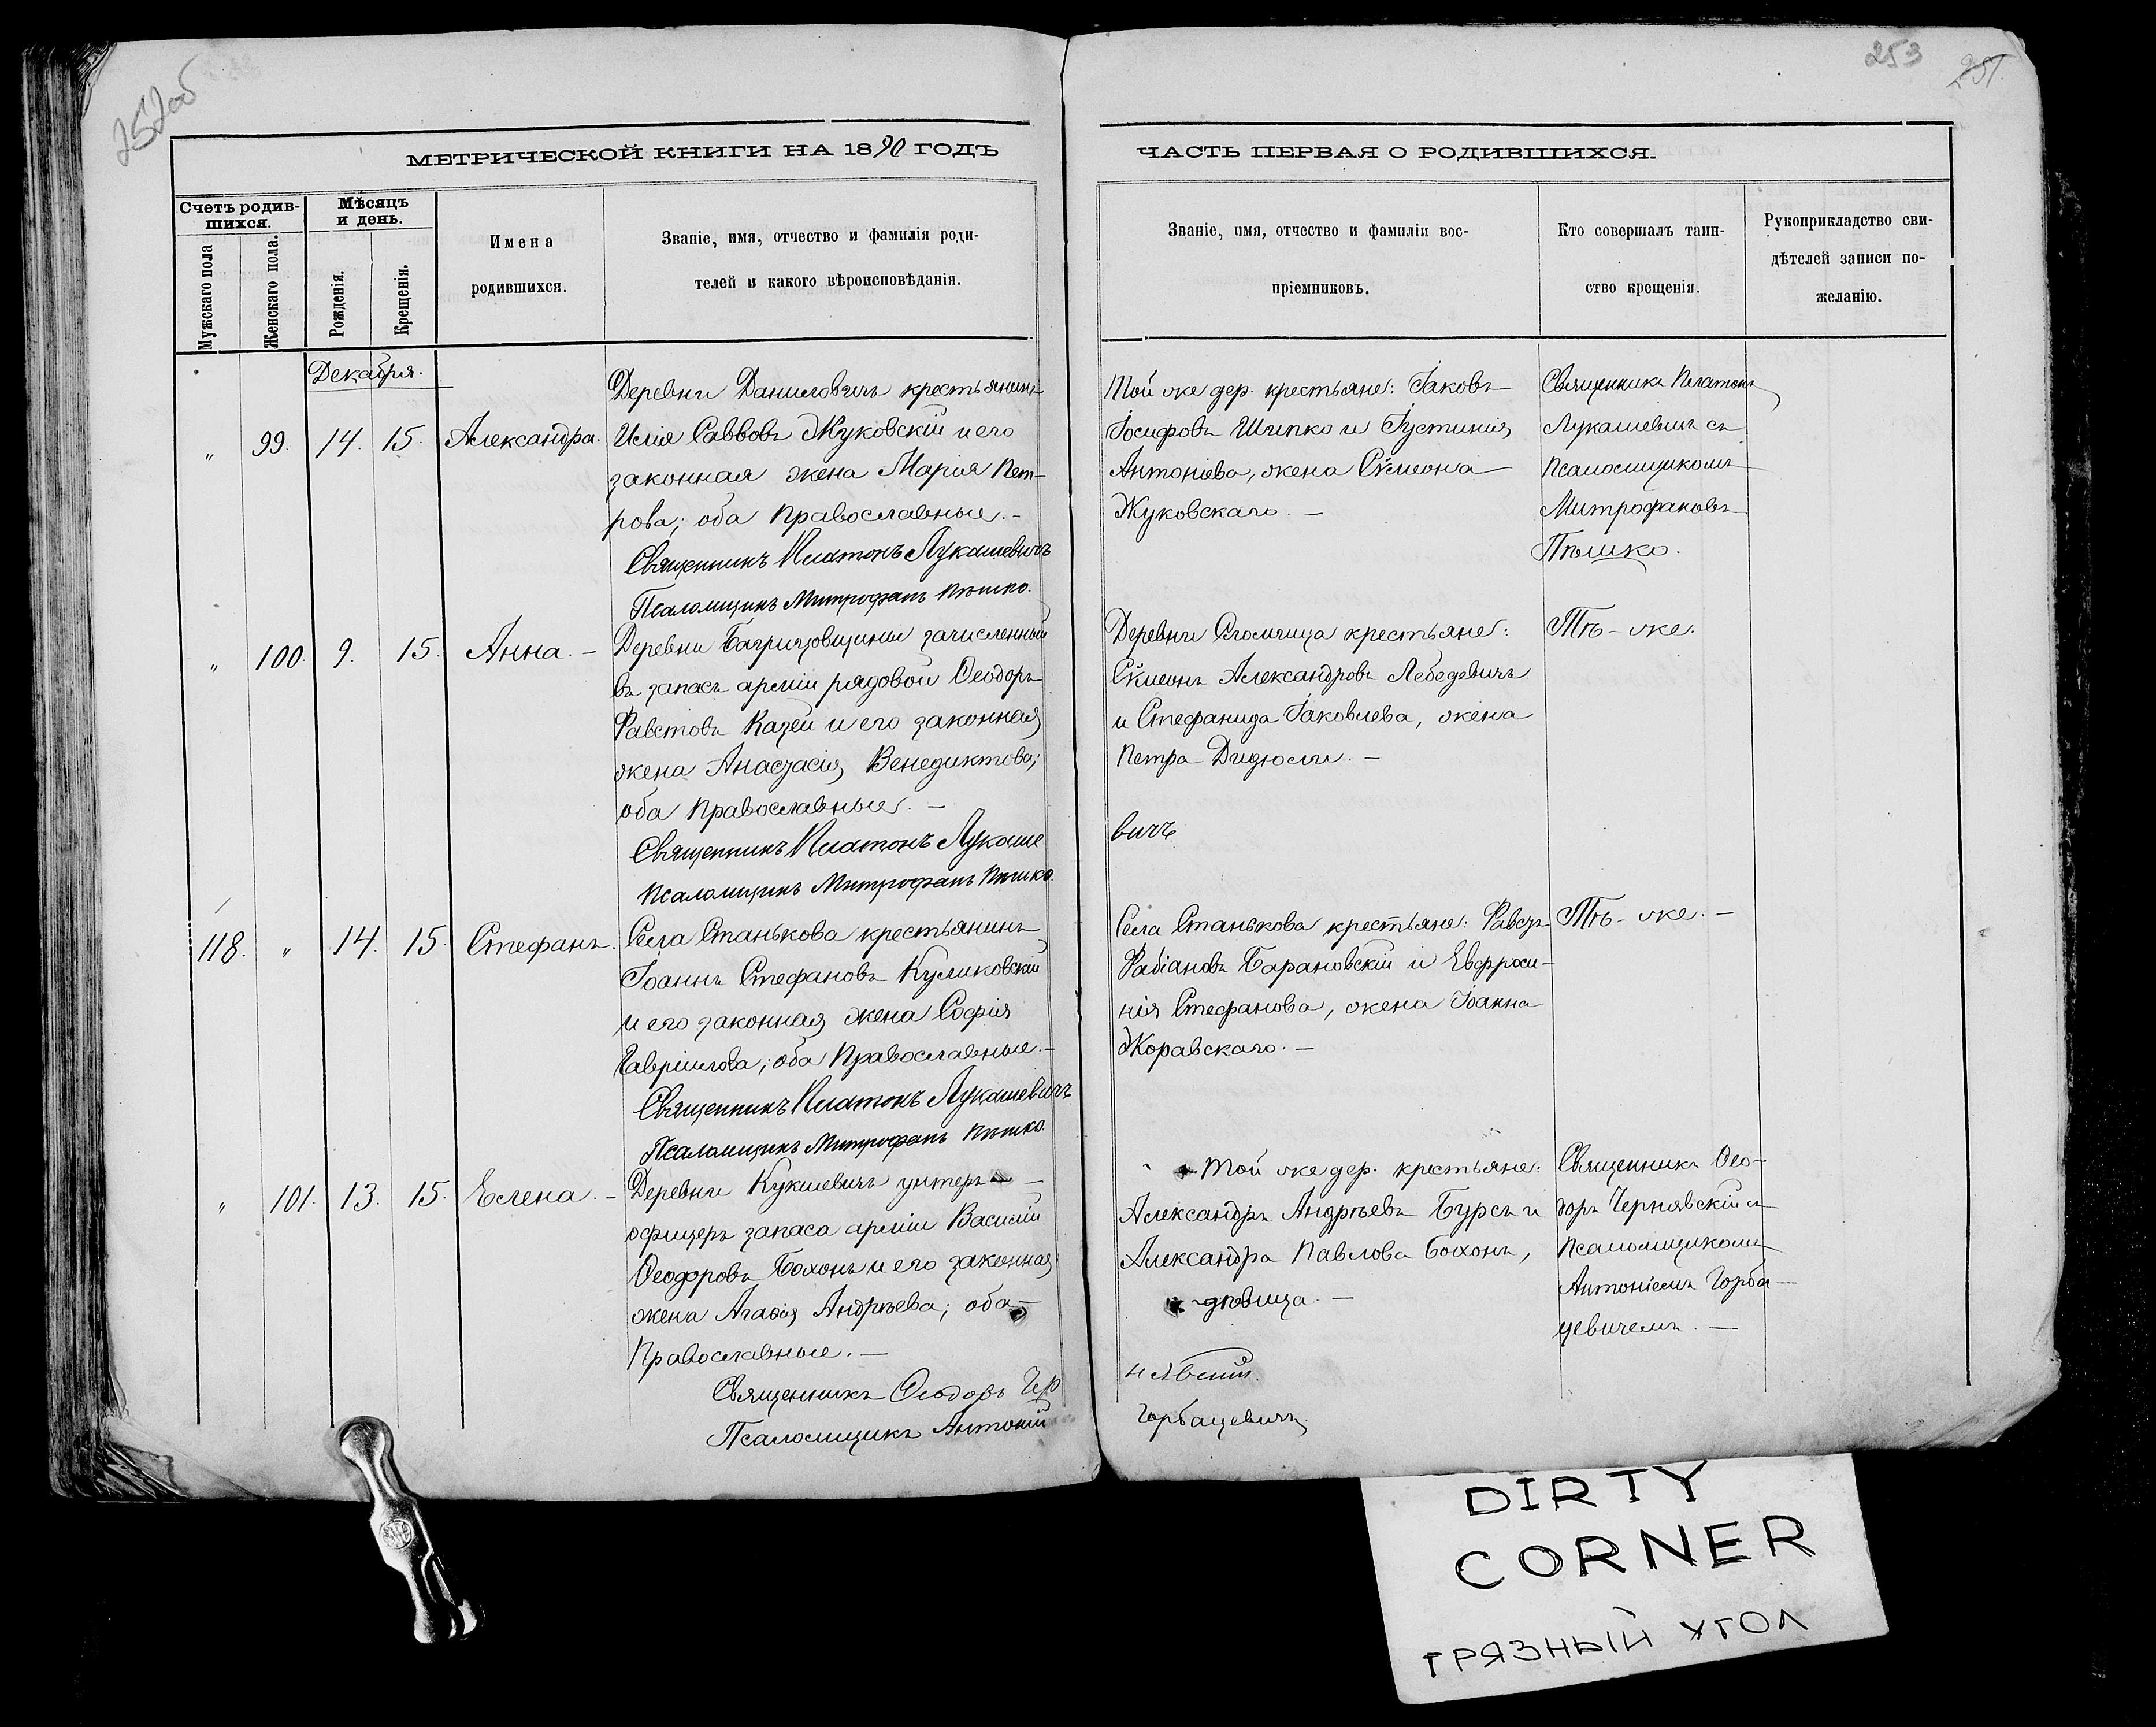 252об
253
251.
МЕТРИЧЕСКОЙ КНИГИ НА 1890 ГОДЪ
ЧАСТЬ ПЕРВАЯ О РОДИВШИХСЯ.
Счетъ родив-
шихся.
Мужскаго пола
Женскаго пола.
Мѣсяцъ
и день.
Рожденія.
Крещенія.
Имена
родившихся.
Званіе, имя, отчество и фамилія роди-
телей и какого вѣроисповѣданія.
Званіе, имя, отчество и фамиліи вос-
пріемниковъ.
Кто совершалъ таин-
ство крещенія.
Рукоприкладство сви-
дѣтелей записи по-
желанію.
Декабря.
" 99. 14. 15. Александра.
Деревни Даниловичъ крестьянинъ
Илія Саввовъ Жуковскій и его
законная жена Марія Пет-
рова; оба Православные. –
Священникъ Платонъ Лукашевичъ
Псаломщикъ Митрофанъ Пѣшко.
Той же дер. крестьяне: Іаковъ
Іосифовъ Шипко и Іустинія
Антоніева, жена Сѵмеона
Жуковскаго. –
Священникъ Платонъ
Лукашевичъ съ
Псаломщикомъ
Митрофаномъ
Пѣшко.
" 100. 9. 15. Анна. –
Деревни Багрицовщины зачисленный
въ запасъ арміи рядовой Ѳеодоръ
Фавстовъ Казей и его законная
жена Анастасія Венедиктова;
оба Православные. –
Священникъ Платонъ Лукаше
вичъ
Псаломщикъ Митрофанъ Пѣшко.
Деревни Сломчица крестьяне:
Сѵмеонъ Александровъ Лебедевичъ
и Стефанида Іаковлева, жена
Петра Дидюли. –
Тѣ-же.
118. " 14. 15. Стефанъ.
Села Станькова крестьянинъ
Іоаннъ Стефановъ Куликовскій
и его законная жена Софія
Гавріилова; оба Православные. –
Священникъ Платонъ Лукашевичъ
Псаломщикъ Митрофанъ Пѣшко.
Села Станькова крестьяне: Фавстъ
Фабіановъ Барановскій и Евфроси-
нія Стефанова, жена Іоанна
Жоравскаго. –
Тѣ-же. –
" 101. 13. 15. Елена. –
Деревни Кукшевичъ унтеръ –
офицеръ запаса арміи Василій
Ѳеодоровъ Бохонъ и его законная
жена Агаѳія Андрѣева; оба –
Православные. –
Священникъ Ѳеодоръ Чер
нявскій.
Псаломщикъ Антоній
Горбацевичъ.
Той же дер. крестьяне:
Александръ Андрѣевъ Бурсъ и
Александра Павлова Бохонъ,
дѣвица. –
Священникъ Ѳео-
доръ Чернявскій съ
Псаломщикомъ
Антоніемъ Горба-
цевичемъ. –
DIRTY
CORNER
ГРЯЗНЫЙ УГОЛ